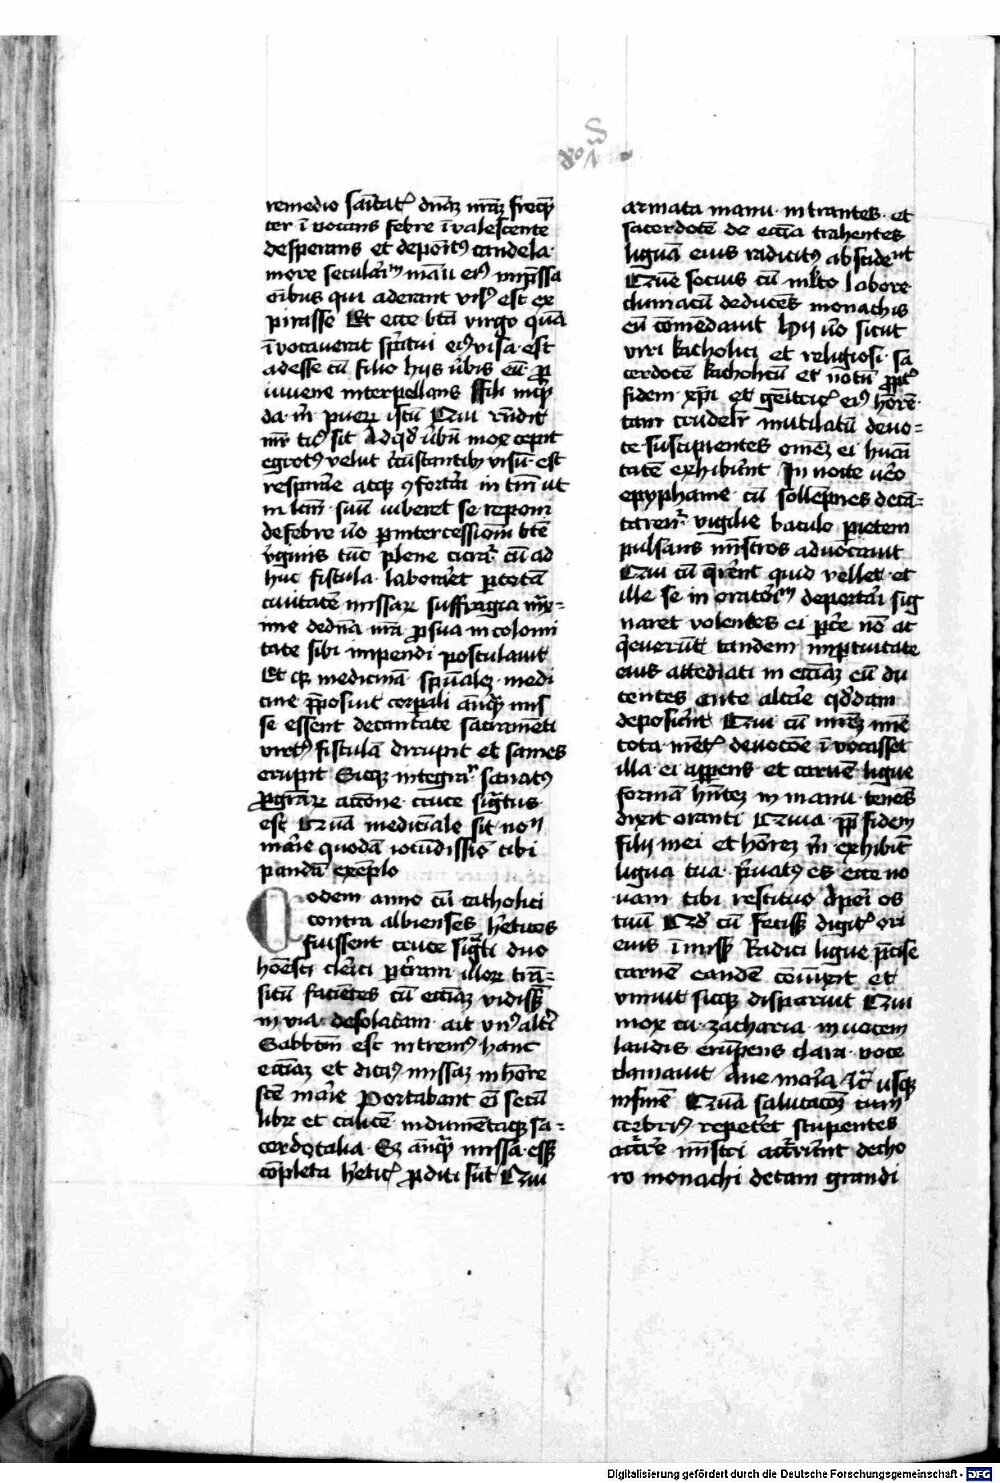 remedio sāitat᷒ dn̄aꝫ nr̄aꝫ freqn̄
ter ī vocans febre īvalescente
desperans et deposit᷒ candela
more seculari᷒ manu ei᷒ imp̄ssa
oībus qui aderant vis᷒ est ex
pirasse Et ecce btā virgo quā
īvocauerat spiritui ei᷒ visa est
adesse cū filio hijs v̄bis eū p̱
iuuene interpellans Fili inq̄
da m̄ puerū istū Cui rn̄dit
mr̄ tu᷒ sit Ad qd̄ v̄bū mox cepit
egrot᷒ velut circūstantibꝫ visū est
respirare atqꝫ ꝯfortari in tm̄ ut
in lectū suū iuberet se reponi
de febre v̄o p̱ intercessioneꝫ btē
v̓ginis tūc plene curat᷒ cū ad
huc fistula laboraret p̱ totā
ciuitatē missarū suffragia max=
ime de dn̄a nr̄a p̱ sua incolomi
tate sibi impendi postulauit
Et qꝫ medicinā sp̄ualeꝫ medi
cine p̄posuit corp̱ali anq̄ꝫ mis
se essent decantate sacramenti
virt᷒ fistulā dirupit et sanies
erupit Sicqꝫ integrar̄ sanat᷒
p̱egrinar̄ accione cruce signatus
est Exēplū mediciale sit no
marie quodā iocūdissiō tibi
pandā exēplo
Eodem anno cū catholici
contra albienses hereticos
fuissent cruce signati duo
honesti clerici p̱ terram illorū trā=
situm faciētes cū ecc̄iaꝫ vidissēt
in via desolatam ait vn᷒ alteri
Sabbatū est intrem᷒ hanc
ecc̄iaꝫ et dicam᷒ missaꝫ in honore
scē marie Portabant eī secū
librū et calicē indumētaqꝫ sa=
cerdotalia Sꝫ anq̄ꝫ missa essꝫ
cōpleta heretic᷒ p̱diti sūt Qui
armata manu intrantes et
sacerdotē de ecc̄ia trahentes
liguā eius radicit᷒ absciderunt
Quē socius cū mlto labore
cluniacū deducens monachis
eū cōmēdauit Hij v̄o sicut
viri katholici et religiosi sa
cerdotē katholicū et notū p̱pt᷒
fidem xp̄i et genitric᷒ ei᷒ honorē
tam crudelr̄ mutilatū deuo=
te suscipientes omēꝫ ei huāi
tatē exhibuerūt In nocte vero
epyphanie cū sollēpnes decā=
tarent᷒ vigilie baculo parietem
pulsans ministros aduocauit
Qui cū querent quid vellet et
ille se in oratoriū deportari sig
naret volentes ei parce nō ac
quieuerūt tandem inportunitate
eius attediati in ecc̄iaꝫ eū du
centes ante altare quoddam
deposuerūt Qui cū mr̄eꝫ mīe
tota ment᷒ deuocōe ī vocasset
illa ei apparens et carnē ligue
formā hn̄teꝫ in manu tenens
dixit oranti Quia pp̄ fidem
filij mei et honoreꝫ m̄ exhibitū
ligua tua priuat᷒ es ecce no
uam tibi restituo Aperi os
tuū Qd̄ cū fecissꝫ digit᷒ ori
eius īmissꝫ Radici ligue p̄cise
carnē eandē coniunxit et
vniuit sicqꝫ disparuit Qui
mox cū zacharia in vocem
laudis erūpens clara voce
clamauit Aue maria ꝛc̄ usqꝫ
in finē Quā salutacōeꝫ cum
crebri᷒ repeteret stupentes
accurrere ministri accurrerunt de cho
ro monachi de tam grandi
Digitalisierung gefördert durch die Deutsche Forschungsgemeinschaft - DFG